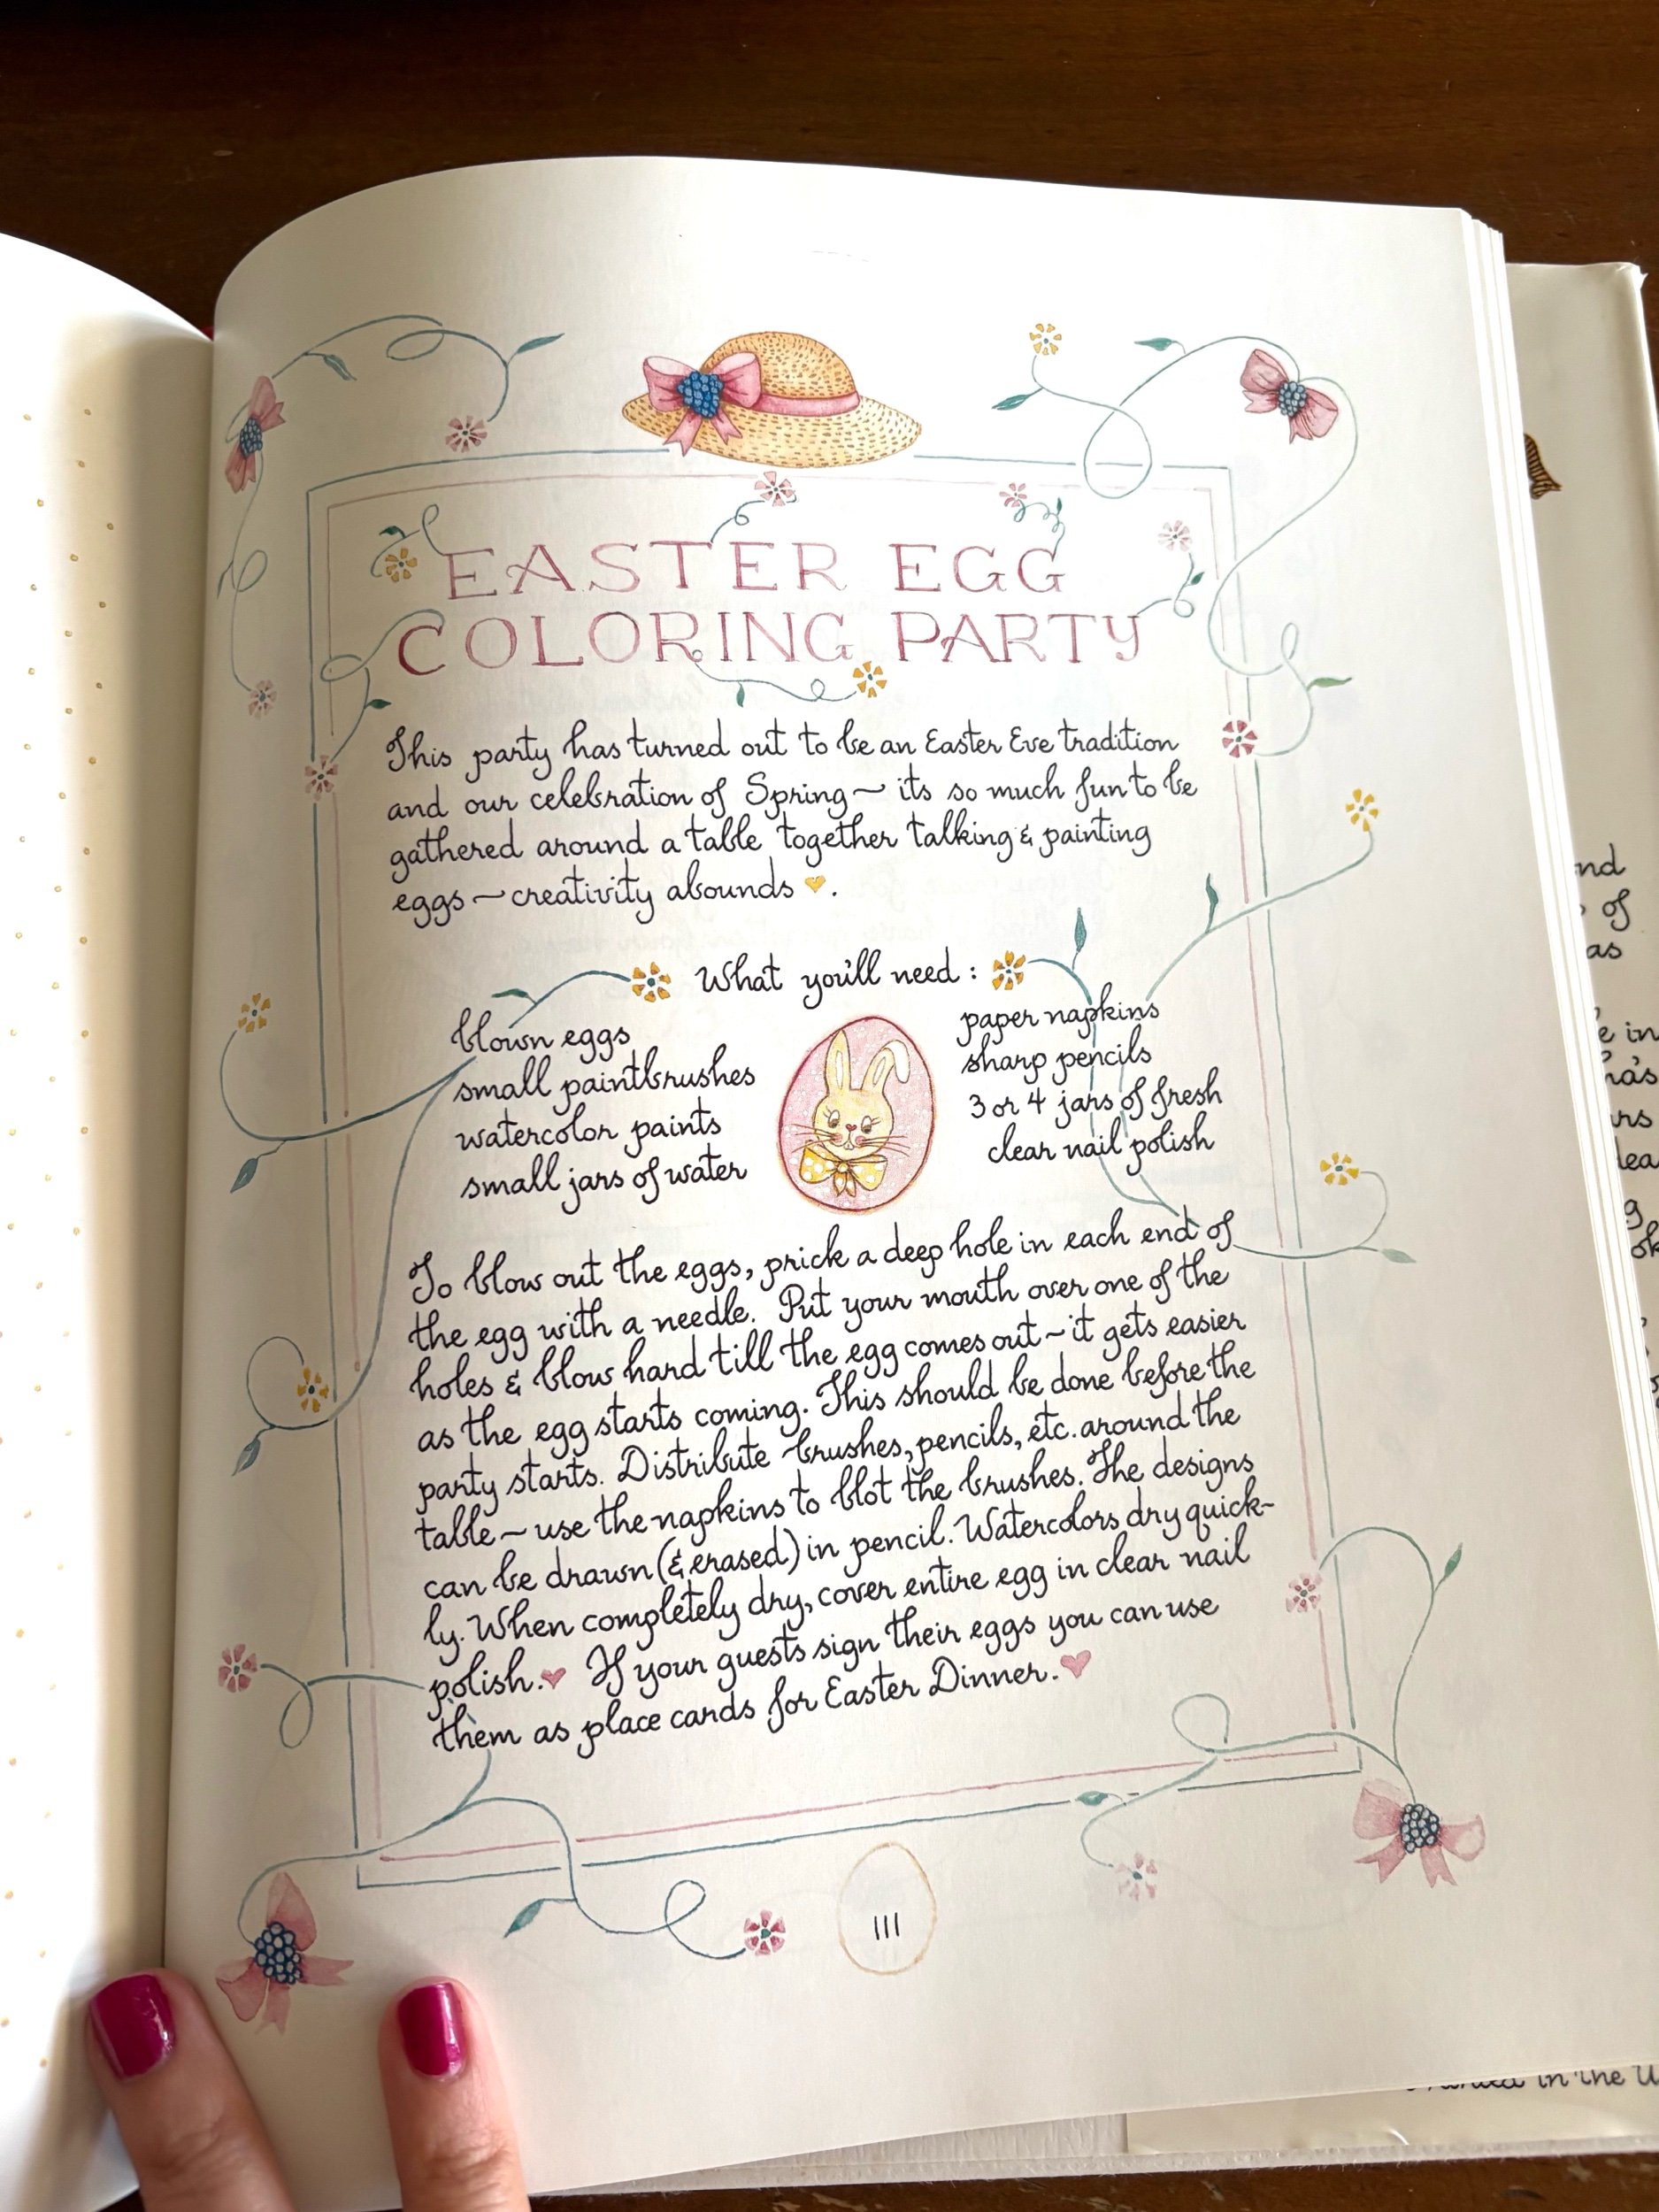 EASTER EGG
COLORING PARTY
This party has turned out to be an Easter Eve tradition
and our celebration of Spring ~ its so much fun to be
gathered around a table together talking & painting
eggs ~ creativity abounds ♥.
What you'll need:
blown eggs
small paintbrushes
watercolor paints
small jars of water
paper napkins
sharp pencils
3 or 4 jars of fresh
clear nail polish
To blow out the eggs, prick a deep hole in each end of
the egg with a needle. Put your mouth over one of the
holes & blow hard till the egg comes out ~ it gets easier
as the egg starts coming. This should be done before the
party starts. Distribute brushes, pencils, etc. around the
table ~ use the napkins to blot the brushes. The designs
can be drawn (& erased) in pencil. Watercolors dry quick-
ly. When completely dry, cover entire egg in clear nail
polish. ♥ If your guests sign their eggs you can use
them as place cards for Easter Dinner. ♥
111
of
as
in
in the U